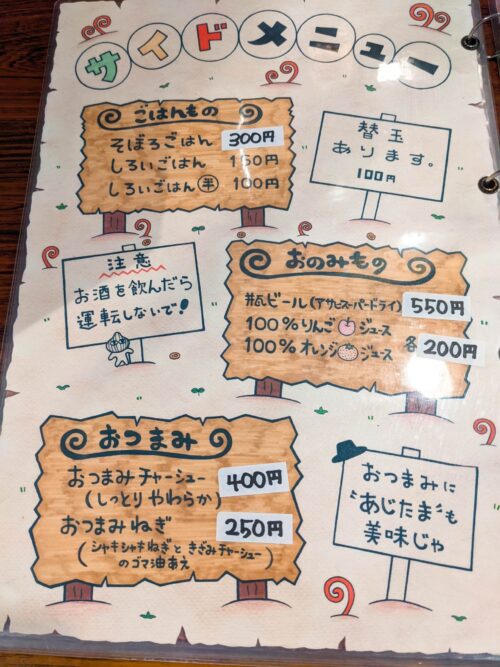 サイドメニュー
ごはんもの
そぼろごはん 300円
しろいごはん 150円
しろいごはん 半 100円
替玉
あります。
100円
注意
お酒を飲んだら
運転しないで!
おのみもの
瓶ビール(アサヒスーパードライ) 550円
100%りんごジュース
100%オレンジジュース 各200円
おつまみ
おつまみチャーシュー 400円
(しっとりやわらか)
おつまみねぎ 250円
(シャキシャキねぎときざみチャーシュー
のゴマ油あえ)
おつまみに
"あじたま"も
美味じゃ